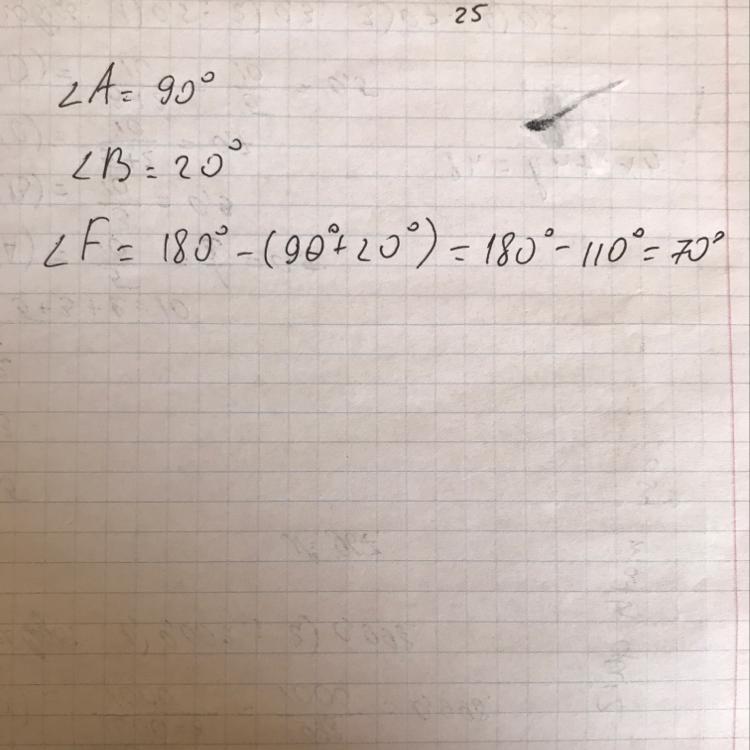 25
∠A = 90°
∠B = 20°
∠F = 180° - (90° + 20°) = 180° - 110° = 70°